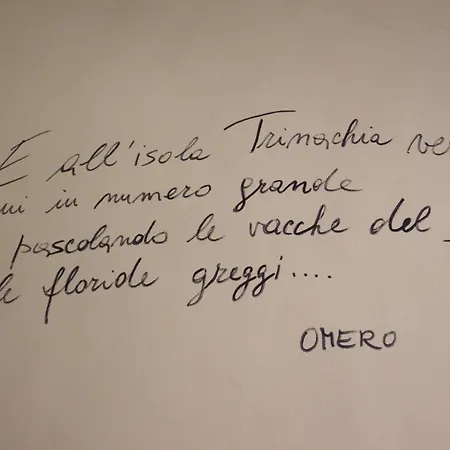 E all'isola Trinachia
in numero grande
pascolando le vacche del
floride greggi....
OMERO